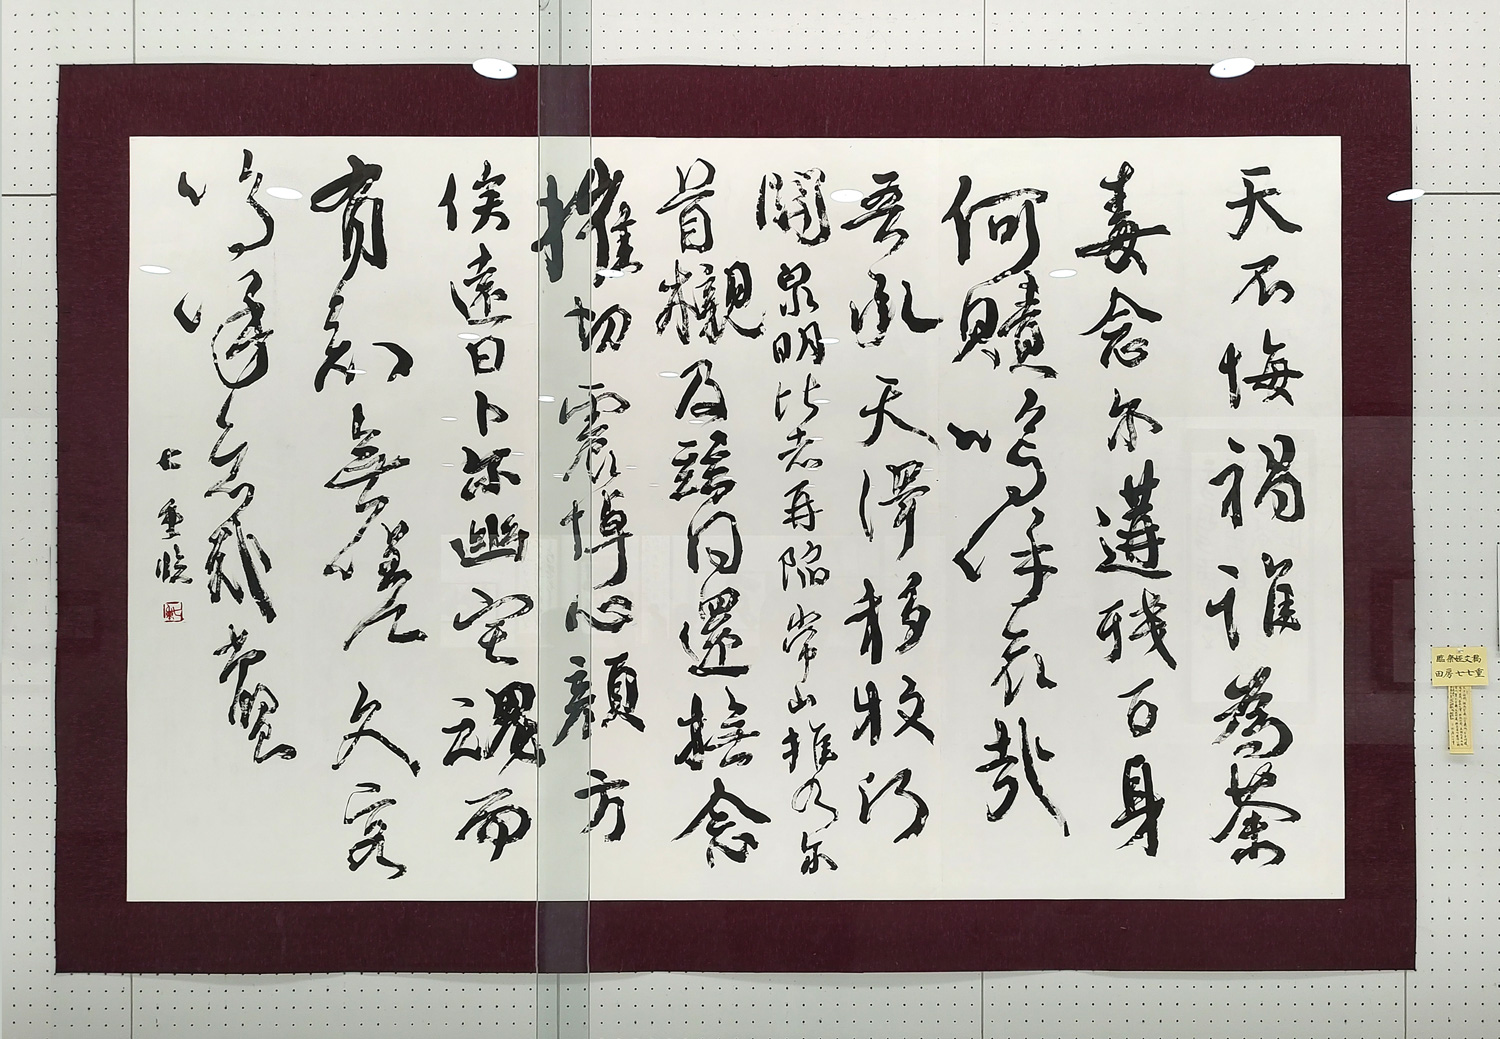 天不悔禍誰為荼
毒念尔遘殘百身
何贖嗚呼哀哉
吾承天澤移牧河
關泉明比者再陷常山攜尔
首櫬及茲同還撫念
摧切震悼心顏方
俟遠日卜尔幽宅魂而
有知無嗟久客
嗚呼哀哉尚饗
七重臨